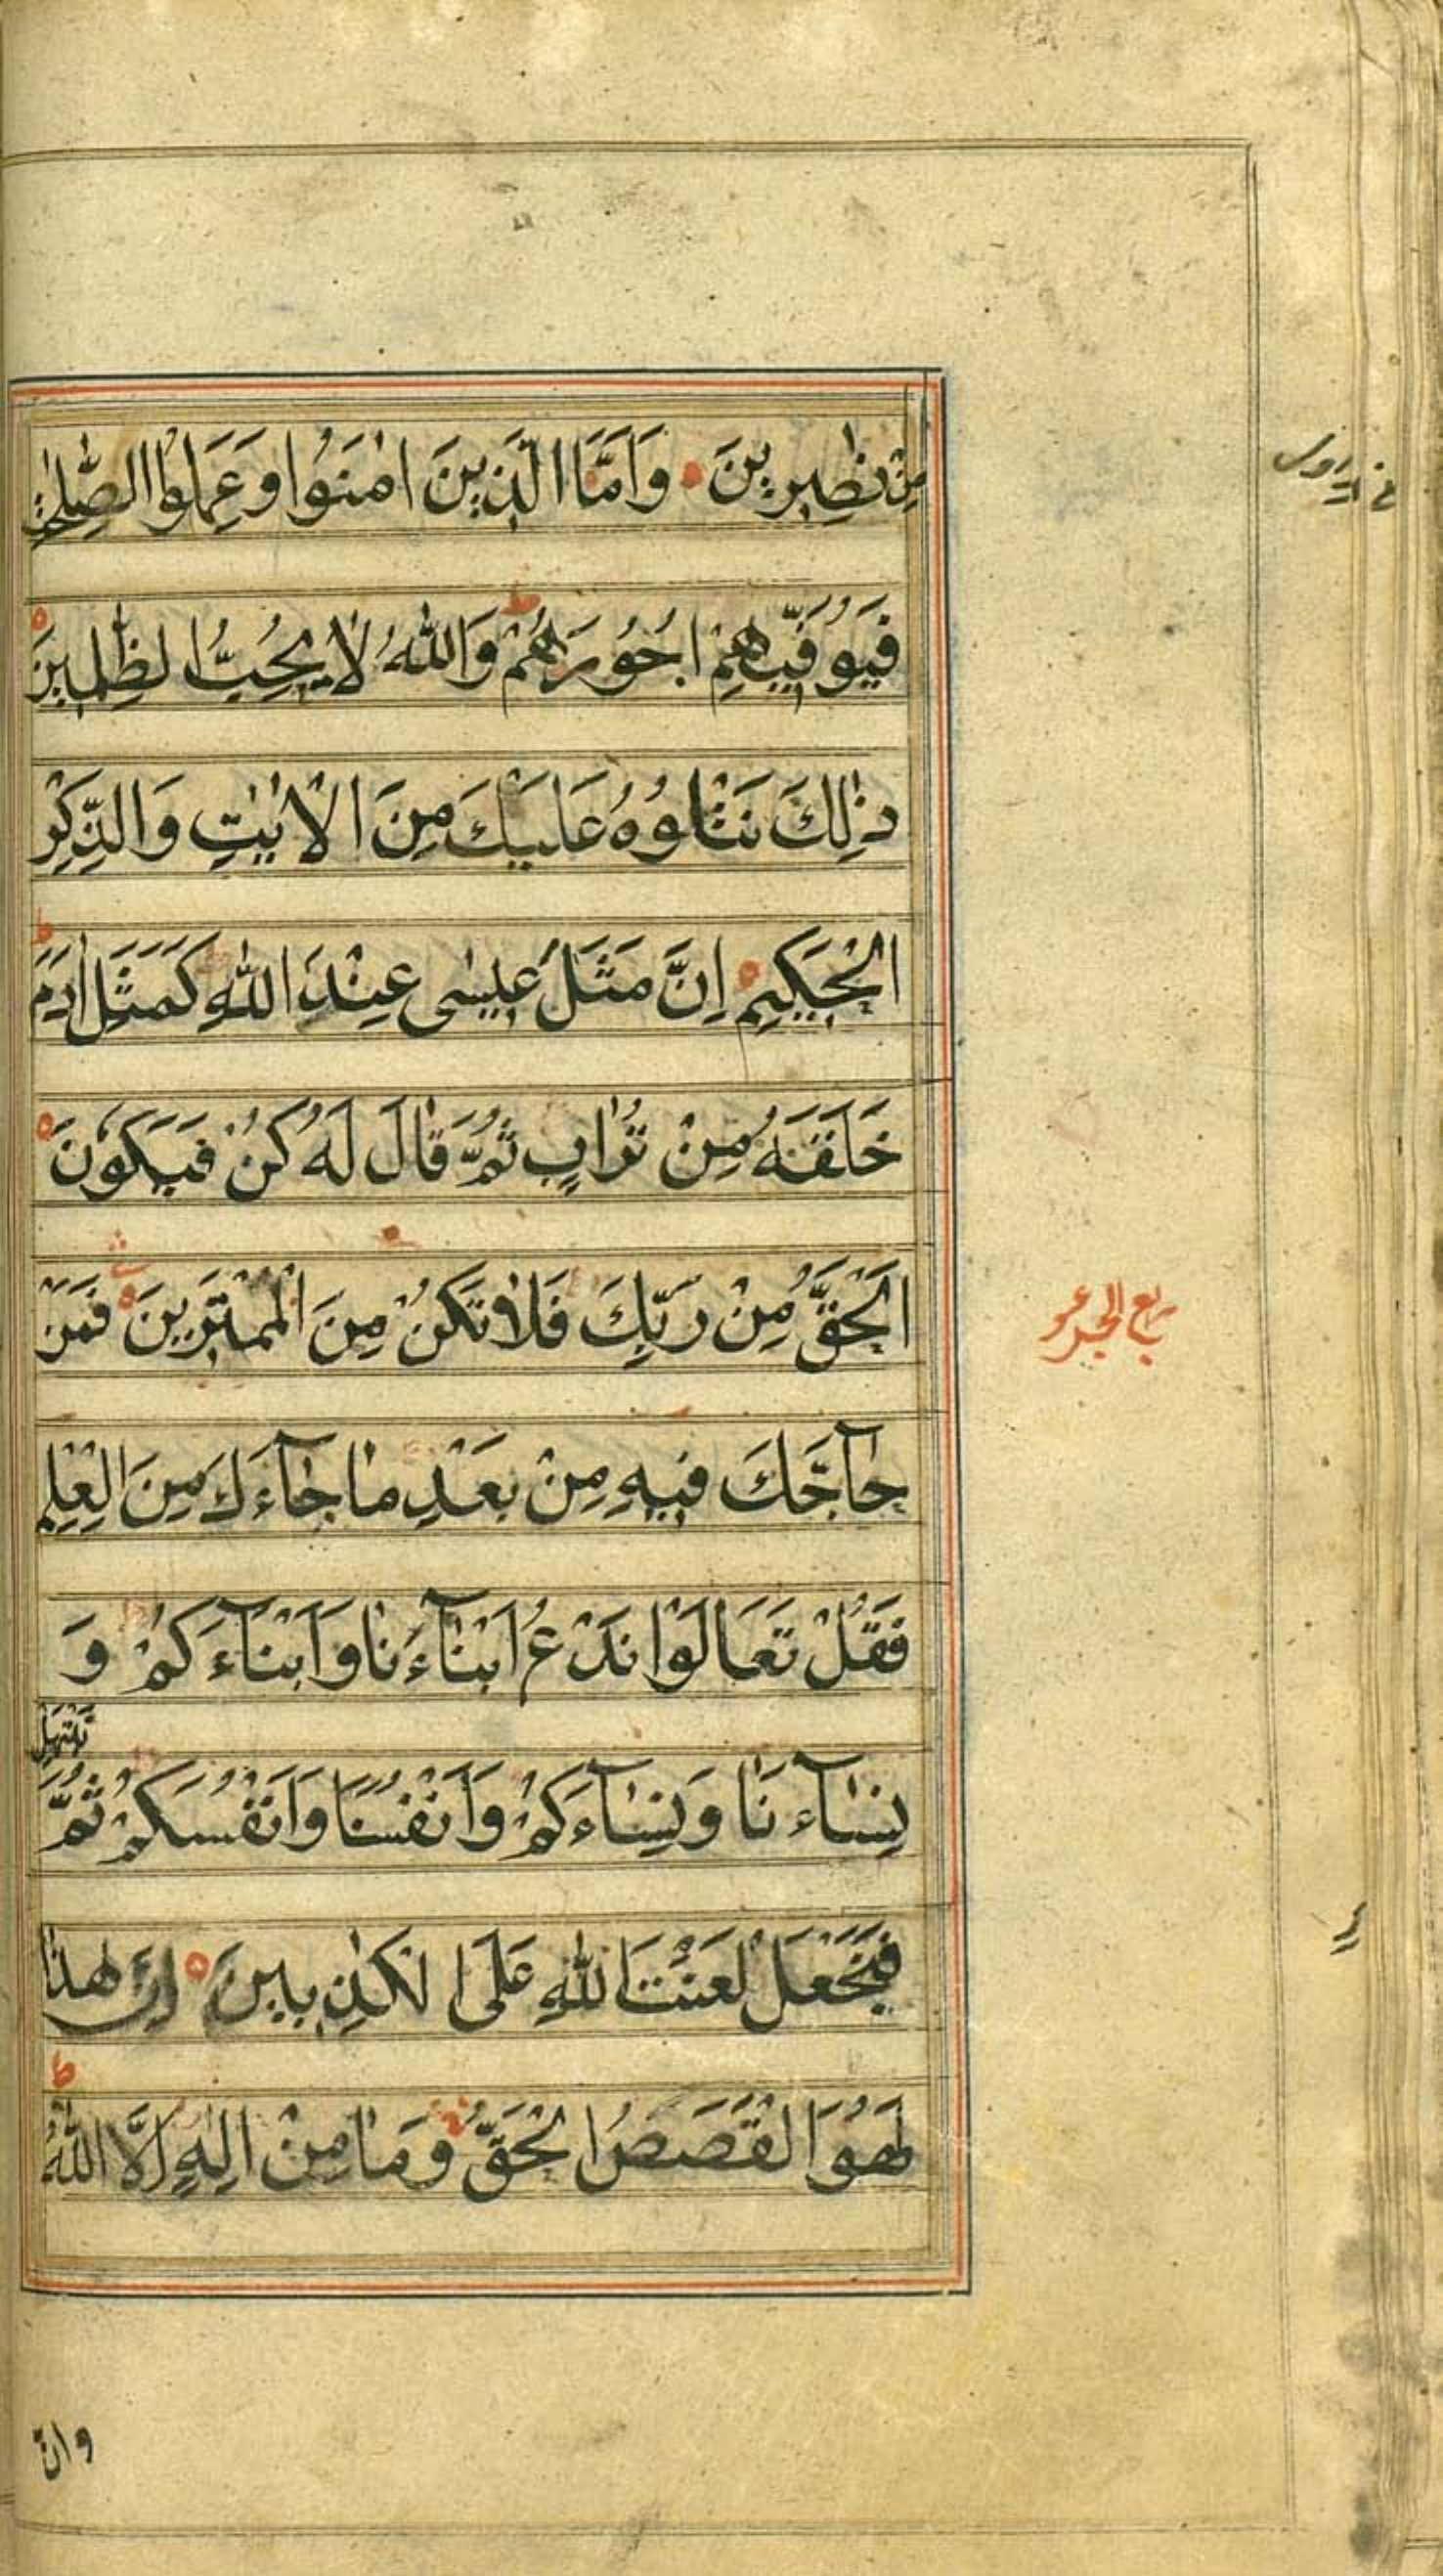 مِنْ نٰصِرِينَ وَاَمَّا الَّذِينَ اٰمَنُوا وَعَمِلُوا الصّٰلِحٰتِ
فَيُوَفِّيهِمْ اُجُورَهُمْ ط وَاللّٰهُ لَا يُحِبُّ الظّٰلِمِينَ
ذٰلِكَ نَتْلُوهُ عَلَيْكَ مِنَ الْاٰيٰتِ وَالذِّكْرِ
الْحَكِيمِ اِنَّ مَثَلَ عِيسٰى عِنْدَ اللّٰهِ كَمَثَلِ اٰدَمَ ط
خَلَقَهُ مِنْ تُرَابٍ ثُمَّ قَالَ لَهُ كُنْ فَيَكُونَ
اَلْحَقُّ مِنْ رَبِّكَ فَلَا تَكُنْ مِنَ الْمُمْتَرِينَ فَمَنْ
حَآجَّكَ فِيهِ مِنْ بَعْدِ مَا جَآءَكَ مِنَ الْعِلْمِ
فَقُلْ تَعَالَوْا نَدْعُ اَبْنَآءَنَا وَاَبْنَآءَكُمْ وَ
نَبْتَهِلْ
نِسَآءَنَا وَنِسَآءَكُمْ وَاَنْفُسَنَا وَاَنْفُسَكُمْ ثُمَّ
فَنَجْعَلْ لَعْنَتَ اللّٰهِ عَلَى الْكٰذِبِينَ اِنَّ هٰذَا
لَهُوَ الْقَصَصُ الْحَقُّ وَمَا مِنْ اِلٰهٍ اِلَّا اللّٰهُ ط
وان